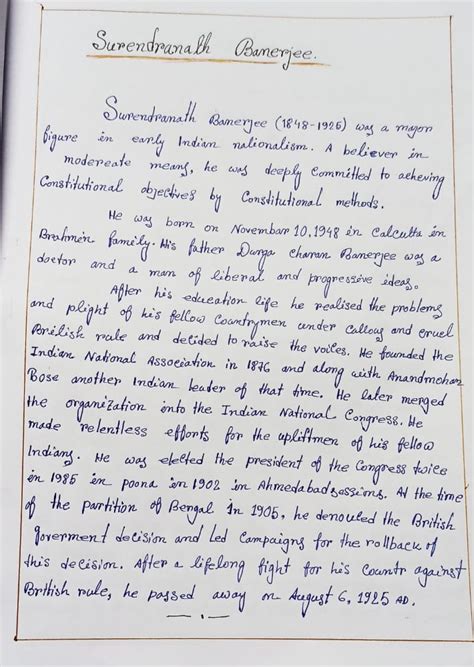 Surendranath Banerjee.
Surendranath Banerjee (1848-1925) was a major
figure in early Indian nationalism. A believer in
modereate means, he was deeply committed to acheving
Constitutional objectives by Constitutional methods.
He was born on November 10,1948 in Calcutta in
Brahmin family. His father Durga charan Banerjee was a
doctor and a man of liberal and progressive ideas.
After his education life he realised the problems
and plight of his fellow countrymen under callous and cruel
British rule and decided to raise the voices. He founded the
Indian National Association in 1876 and along with Anandmohan
Bose another Indian leader of that time. He later merged
the organization into the Indian National Congress. He
made relentless efforts for the upliftmen of his fellow
Indians. He was elected the president of the Congress twice
in 1985 in poona in 1902 in Ahmedabad sessions. At the time
of the partition of Bengal in 1905, he denouled the British
goverment decision and led Campaigns for the rollback of
this decision. After a lifelong fight for his Countr against
British rule, he passed away on August 6, 1925 AD.